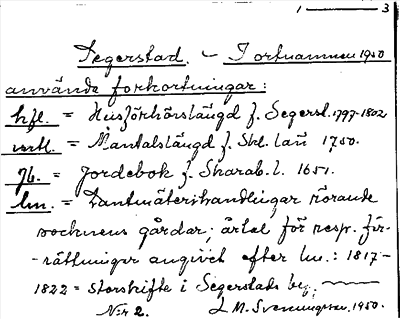 1 — 3
Segerstad. – I ortnamnen 1950
använda förkortningar:
hfl. = Husförhörslängd f. Segerst. 1797-1802
mtl. = Mantalslängd f. Skl. län 1750.
Jb. = Jordebok f. Skarab. l. 1651.
lm. = Lantmäterihandlingar rörande
socknens gårdar; årtal för resp. för-
-rättningar angivet efter lm.: 1817-
1822 = storskifte i Segerstads by.
N:r 2. L. M. Svenungsson, 1950.